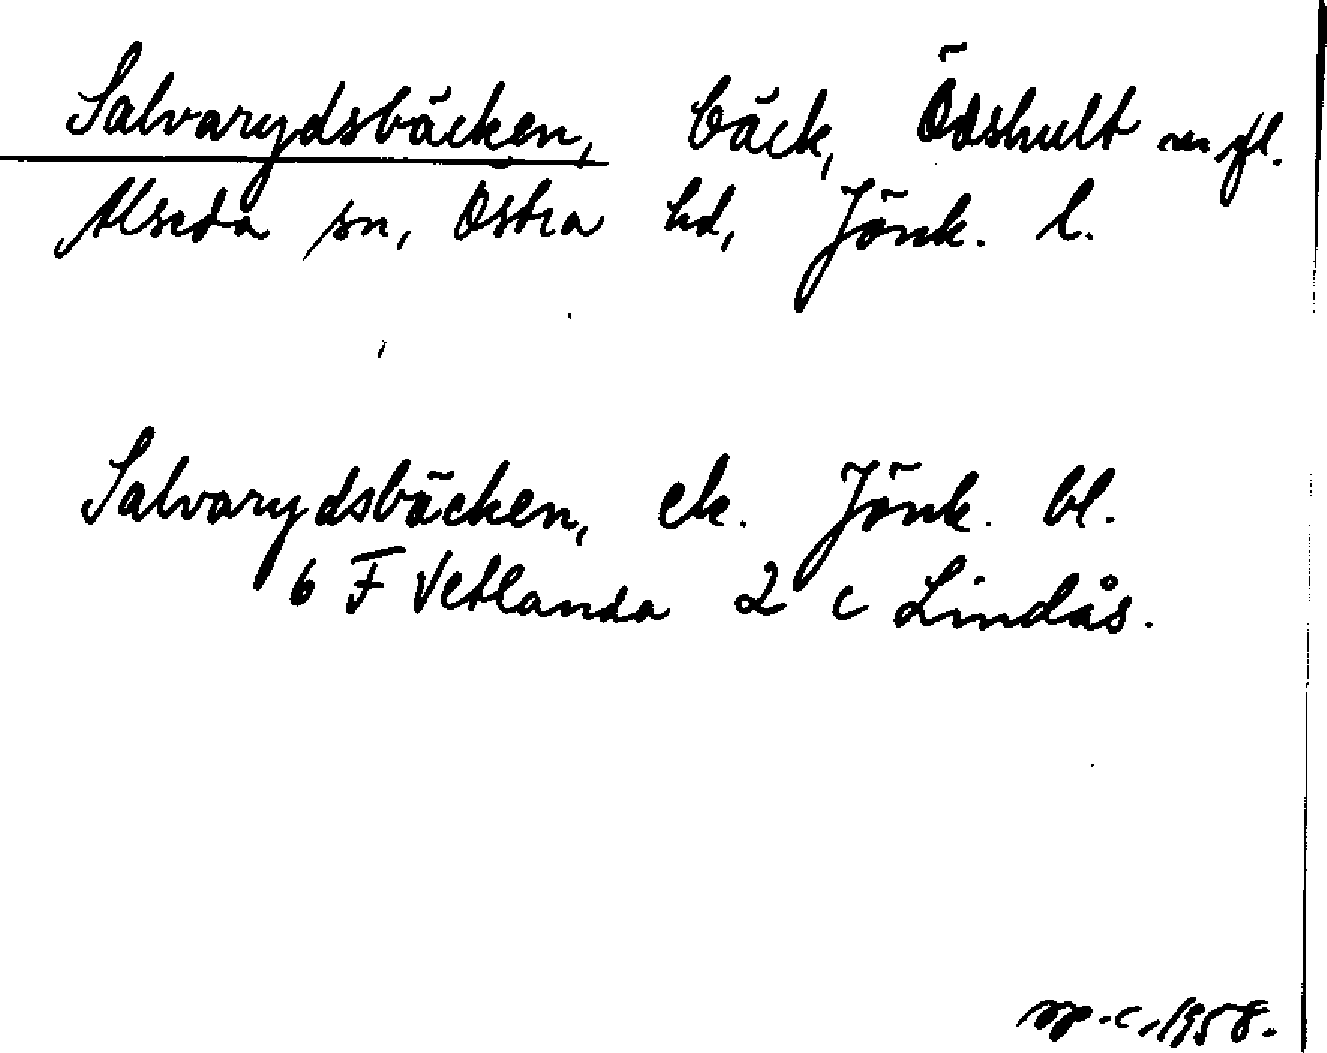 Salvarydsbäcken, bäck, Ödshult m fl.
Alseda sn, Östra hd, Jönk. l.
Salvarydsbäcken, ek. Jönk. bl.
6 F Vetlanda 2 c Lindås.
1958.